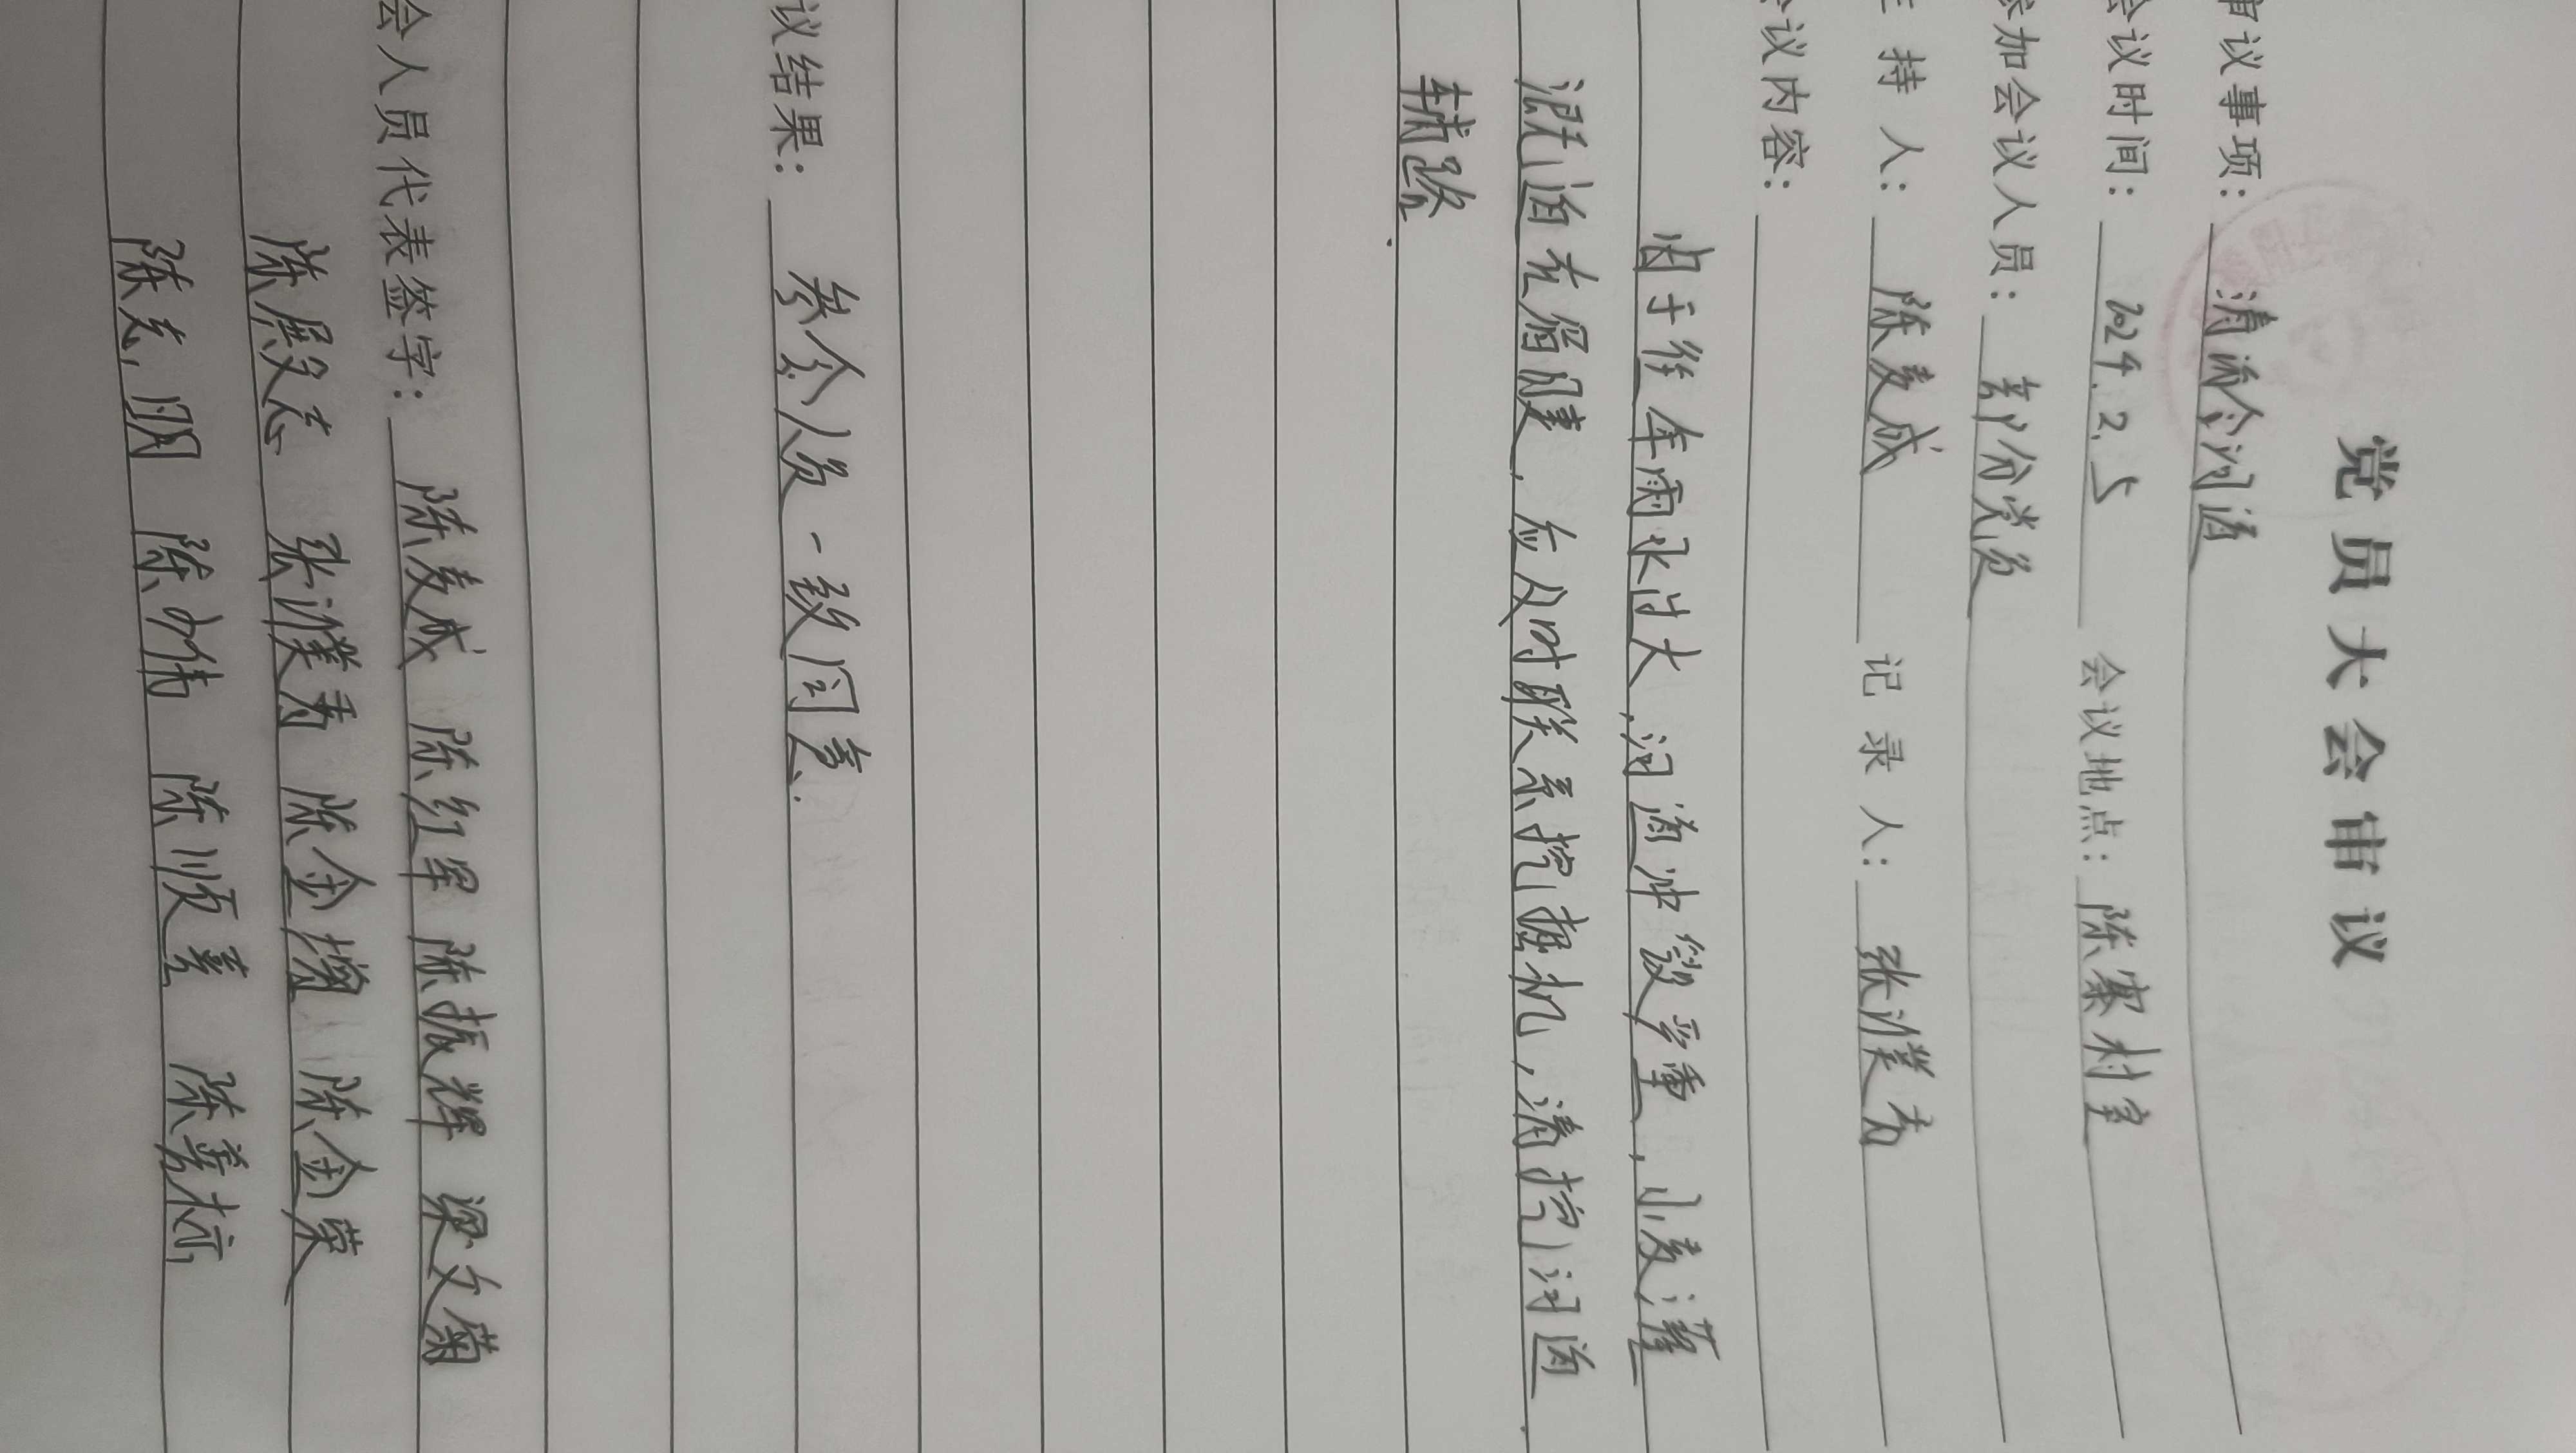 党员大会审议
审议事项: 清淤会河道
会议时间: 2024.2.5 会议地点: 陈寨村室
参加会议人员: 部分党员
主持人: 陈麦成 记录人: 张濮秀
会议内容:
由于往年雨水过大,河道冲毁严重,小麦灌
溉迫在眉睫,应及时联系挖掘机,清挖河道
辅路.
议结果: 参会人员一致同意.
会人员代表签字: 陈麦成 陈红军 陈振辉 梁文菊
陈殿志 张濮秀 陈金增 陈金荣
陈志明 陈少伟 陈顺喜 陈善标